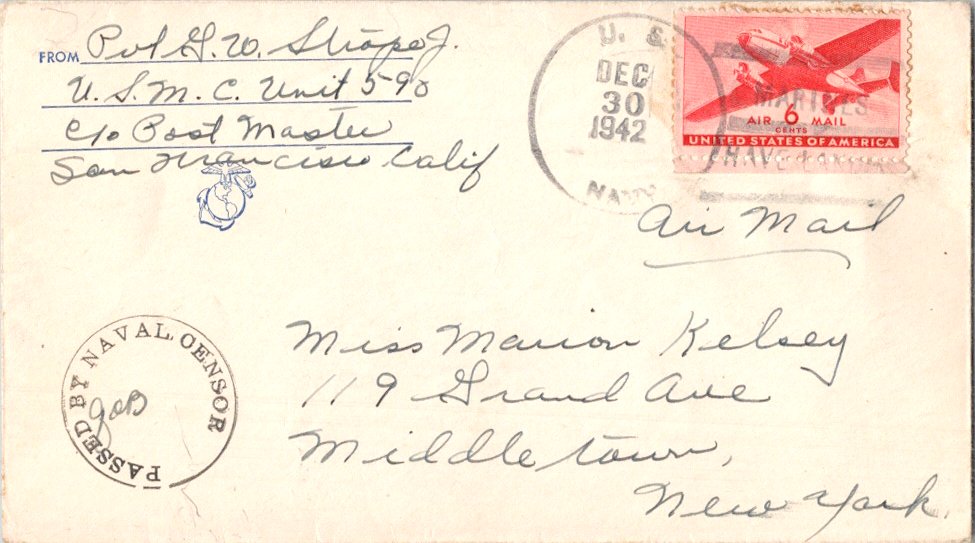 FROM Pvt G. W. Strope Jr.
U. S. M. C. Unit 590
c/o Post Master
San Francisco Calif
U. S.
DEC
30
1942
NAVY
MARINES
HAVE
AIR 6 MAIL
CENTS
UNITED STATES OF AMERICA
Air Mail
PASSED BY NAVAL CENSOR
Miss Marion Kelsey
119 Grand Ave
Middletown,
New York.